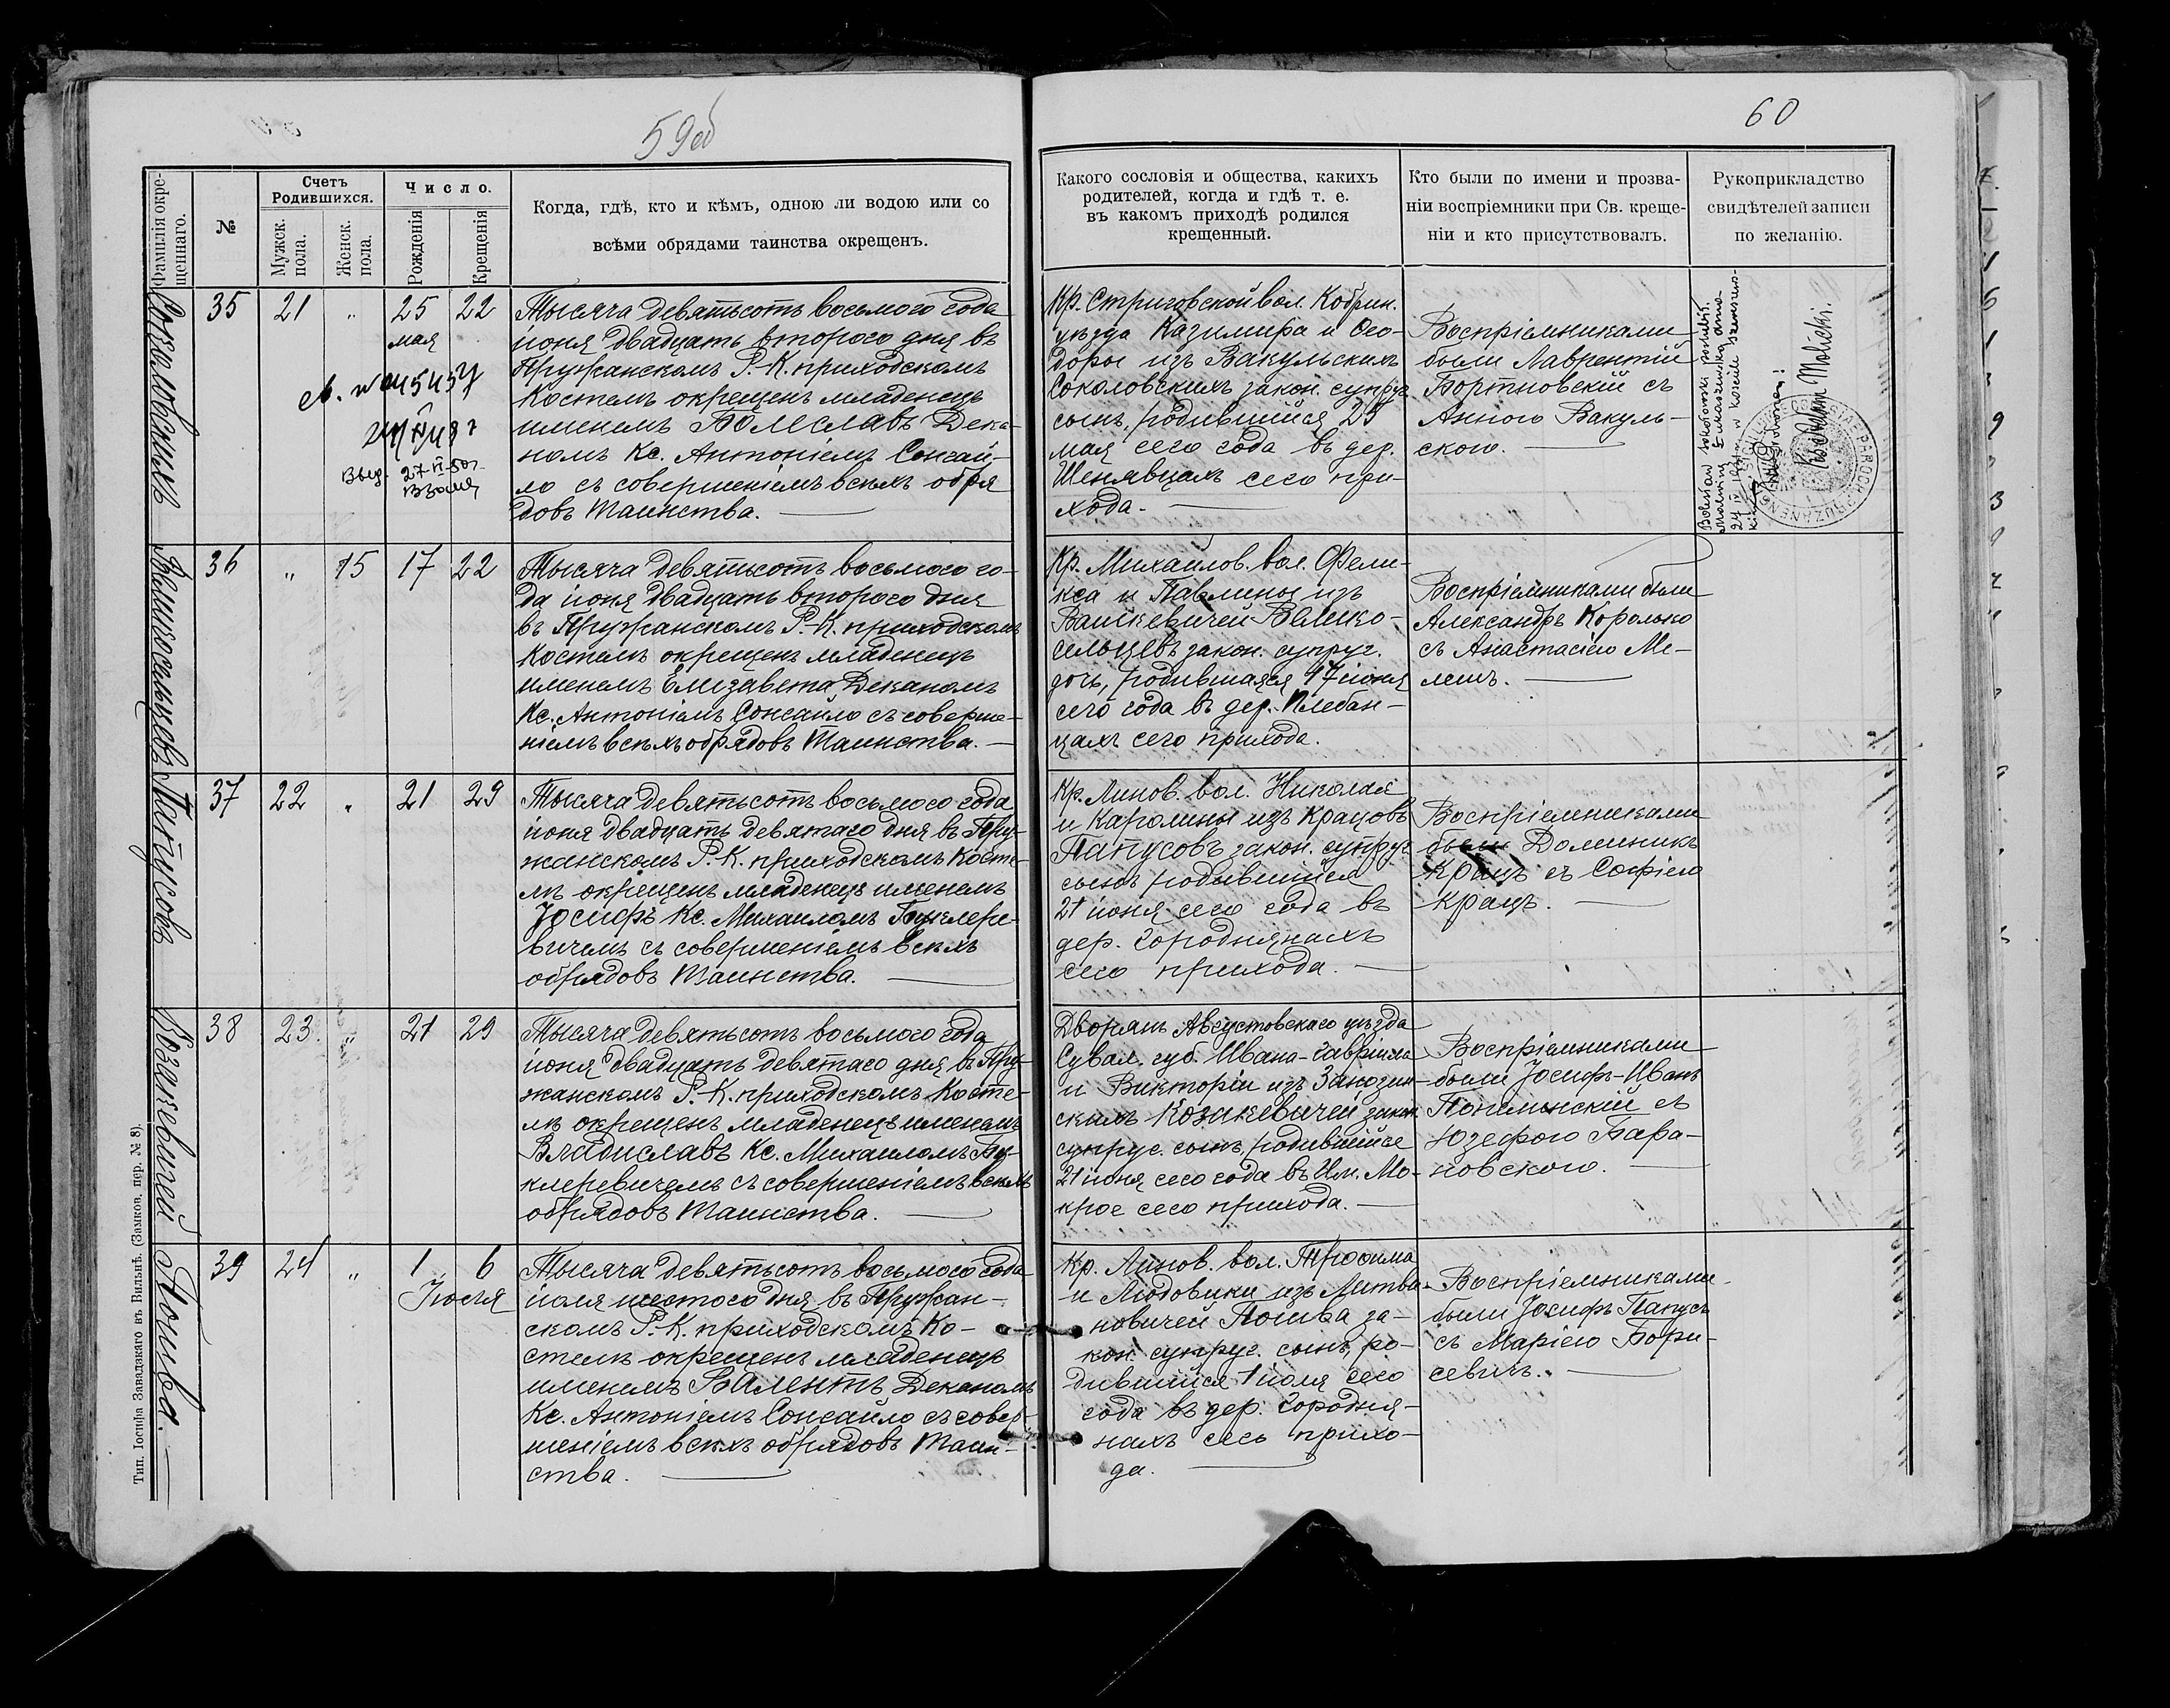 59об
60
Фамилія окрещеннаго.
№
Счетъ Родившихся.
Мужск. пола.
Женск. пола.
Число.
Рожденія
Крещенія
Когда, гдѣ, кто и кѣмъ, одною ли водою или со
всѣми обрядами таинства окрещенъ.
Какого сословія и общества, какихъ
родителей, когда и гдѣ т. е.
въ какомъ приходѣ родился
крещенный.
Кто были по имени и прозва-
ніи воспріемники при Св. креще-
ніи и кто присутствовалъ.
Рукоприкладство
свидѣтелей записи
по желанію.
Соколовскихъ
35 21 „ 25 22
мая
Тысяча девятьсотъ восьмого года
іюня двадцать второго дня въ
Пружанскомъ Р.-К. приходскомъ
Костелѣ окрещенъ младенецъ
именемъ Болеславъ Дека-
номъ Кс. Антоніемъ Сонгай-
ло съ совершеніемъ всѣхъ обря
довъ Таинства.
Кр. Стриговской вол. Кобрин.
уѣзда Казимира и Ѳео-
доры изъ Вакульскихъ
Соколовскихъ закон. супруг.
сынъ, родившійся 25
мая сего года въ дер.
Шенявцахъ сего при-
хода.
Воспріемниками
были Лаврентій
Бортновскій съ
Анною Вакуль-
скою.
Bolesław Sokołowski poślubił
Malwinę Łukaszewską dnia
Ks. Adam Malicki.
Великосельцевъ
36 „ 15 17 22
Тысяча девятьсотъ восьмого го-
да іюня двадцать второго дня
въ Пружанскомъ Р.-К. приходскомъ
Костелѣ окрещенъ младенецъ
именемъ Елизавета Деканомъ
Кс. Антоніемъ Сонгайло съ соверше-
ніемъ всѣхъ обрядовъ Таинства.
Кр. Михайлов. вол. Фели-
кса и Павлины изъ
Вашкевичей Велико-
сельцевъ закон. супруг.
дочь, родившаяся 17 іюня
сего года въ дер. Плебан-
цахъ сего прихода.
Воспріемниками были
Александръ Королько
съ Анастасіею Ме-
лешъ.
Папусовъ
37 22 „ 21 29
Тысяча девятьсотъ восьмого года
іюня двадцать девятаго дня въ Пру-
жанскомъ Р.-К. приходскомъ Косте-
лѣ окрещенъ младенецъ именемъ
Іосифъ Кс. Михаиломъ Буклере-
вичемъ съ совершеніемъ всѣхъ
обрядовъ Таинства.
Кр. Линов. вол. Николая
и Каролины изъ Крацовъ
Папусовъ закон. супруг.
сынъ родившійся
21 іюня сего года въ
дер. Городнянахъ
сего прихода.
Воспріемниками
были Доминикъ
Крацъ съ Софіею
Крацъ.
Козакевичей
38 23 „ 21 29
Тысяча девятьсотъ восьмого года
іюня двадцать девятаго дня въ Пру-
жанскомъ Р.-К. приходскомъ Косте-
лѣ окрещенъ младенецъ именемъ
Владиславъ Кс. Михаиломъ Бу-
клеревичемъ съ совершеніемъ всѣхъ
обрядовъ Таинства.
Дворянъ Августовскаго уѣзда
Сувал. губ. Ивана-Гавріила
и Викторіи изъ
Козакевичей закон.
супруг. сынъ, родившійся
21 іюня сего года въ Им. Мо-
крое сего прихода.
Воспріемниками
были Іосифъ-Иванъ
съ
Юзефою Бара-
новскою.
Пошва.
39 24 „ 1 6
Іюля
Тысяча девятьсотъ восьмого года
іюля шестого дня въ Пружан-
скомъ Р.-К. приходскомъ Ко-
стелѣ окрещенъ младенецъ
именемъ Валентъ Деканомъ
Кс. Антоніемъ Сонгайло съ совер-
шеніемъ всѣхъ обрядовъ Таин-
ства.
Кр. Линов. вол. Трофима
и Людовики изъ Литви-
новичей Пошва за-
кон. супруг. сынъ, ро-
дившійся 1 іюля сего
года въ дер. Городня-
нахъ сего прихо-
да.
Воспріемниками
были Іосифъ Папусъ
съ Маріею Бори-
севичъ.
Тип. Іосифа Завадзкаго въ Вильнѣ. (Замков. пер. № 8).